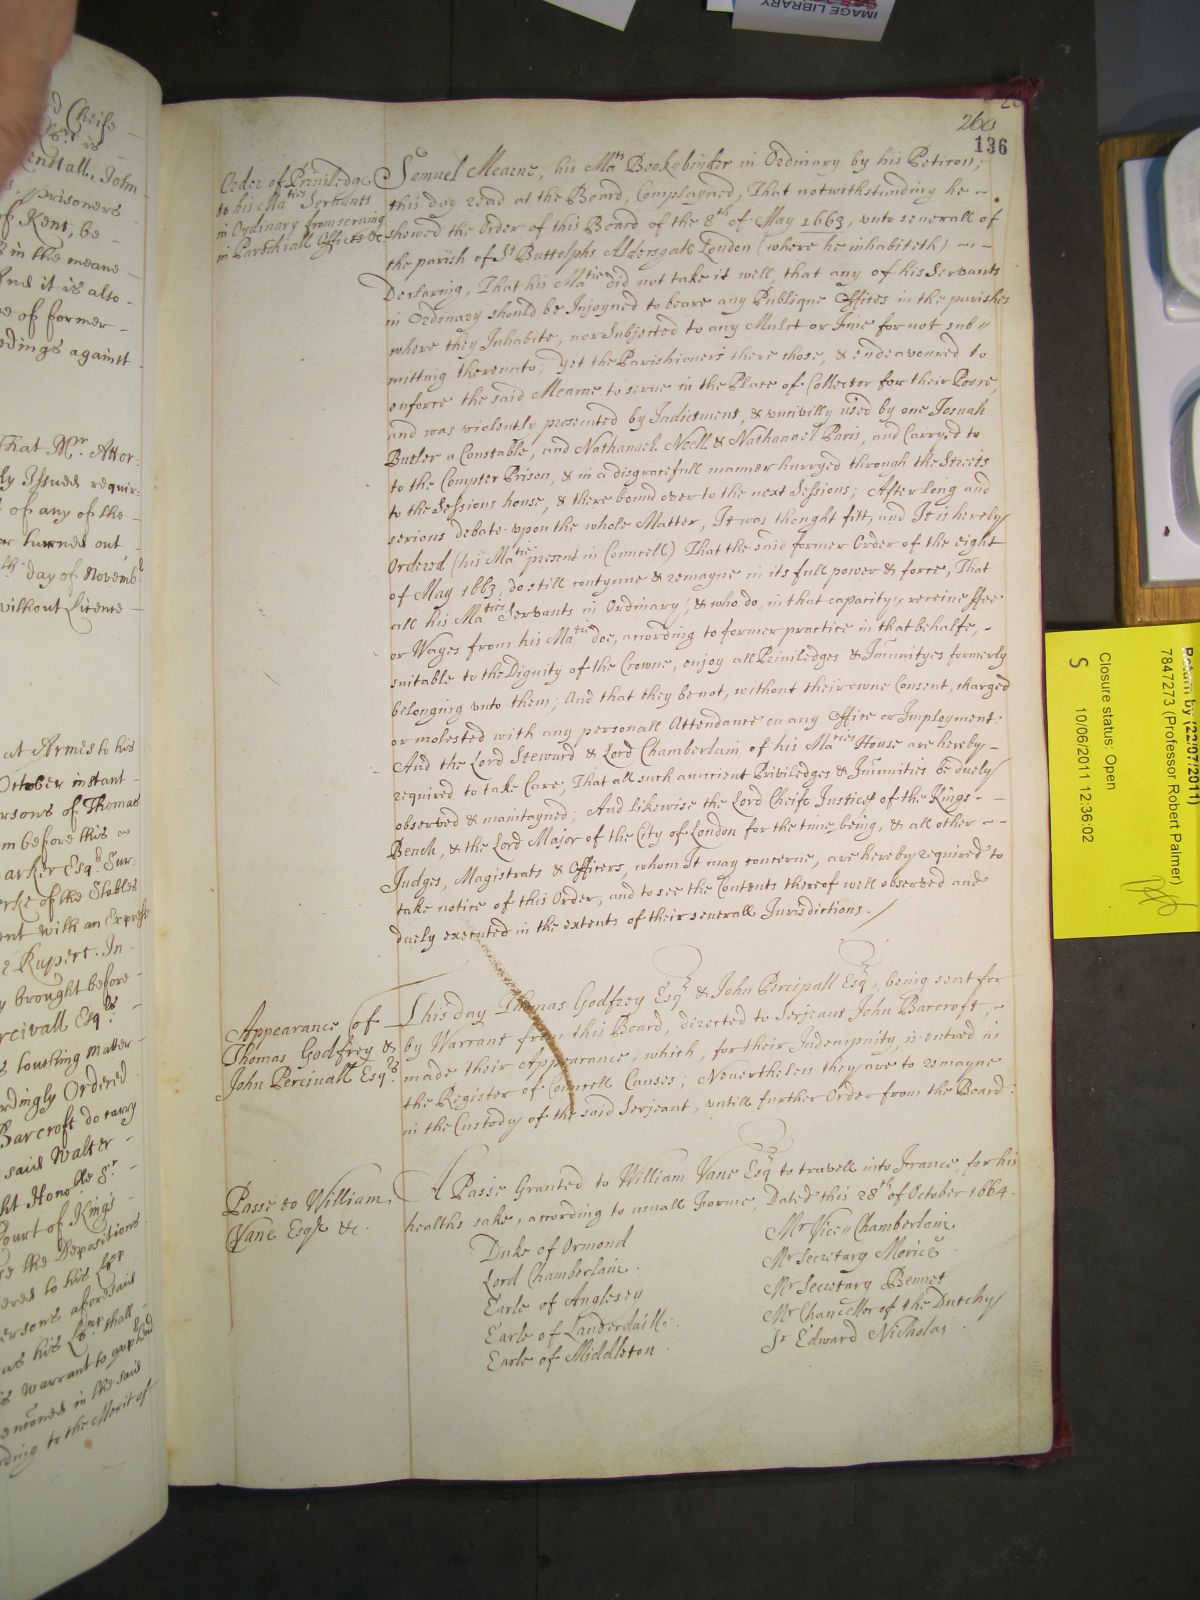 IMAGE LIBRARY
260
136
Order of Priviledge
to his Ma^ties Servants
in Ordinary from serving
in Parochiall Offices &c
Samuel Mearne, his Ma^ts Bookebinder in Ordinary by his Peticon,
this day read at the Board, Complayned, That notwithstanding he
shewed the Order of this Board of the 8^th of May 1663, unto severall of
the parish of S^t Buttolphs Aldersgate London (where he inhabiteth)
Declaring, That his Ma^tie did not take it well, that any of his Servants
in Ordinary should be Injoyned to beare any Publique Offices in the parishes
where they Inhabite, nor Subjected to any Mulct or Fine for not sub
mitting thereunto; yet the Parishioners there chose, & endeavoured to
enforce the said Mearne to serve in the Place of Collector for their Poore,
and was violently presented by Indictment, & uncivilly used by one Josuah
Butler a Constable, and Nathanuel Noell & Nathanael Paris, and Carryed to
to the Compter Prison, & in a disgracefull manner hurryed through the Streets
to the Sessions house, & there bound over to the next Sessions; After long and
serious debate upon the whole Matter, It was thought fitt, and It is hereby
Ordered (his Ma^tie present in Councell) That the said former Order of the eight
of May 1663, do still contynue & remayne in its full power & force, That
all his Ma^ties Servants in Ordinary, & who do, in that capacity, receive ffee
or Wages from his Ma^tie doe, according to former practice in that behalfe,
suitable to the Dignity of the Crowne, enjoy all Priviledges & Immityes formerly
belonging unto them; And that they be not, without their owne Consent, charged
or molested with any personall Attendance on any Office or Imployment:
And the Lord Steward & Lord Chamberlain of his Ma^ties House are hereby
required to take Care, That all such anncient Priviledges & Immities be duely
observed & maintayned; And likewise the Lord Cheife Justice of the Kings
Bench, & the Lord Major of the City of London for the time being, & all other
Judges, Magistrats & Officers, whom It may concerne, are hereby required to
take notice of this Order, and to see the Contents thereof well observed and
duely executed in the extents of their severall Jurisdictions.
Appearance of
Thomas Godfrey &
John Percivall Esq^rs
This day Thomas Godfrey Esq^r & John Percivall Esq^r, being sent for
by Warrant from this Board, directed to Serjeant John Barcroft,
made their Appearance, which, for their Indempnity, is entred in
the Register of Councell Causes; Neverthelesse they are to remayne
in the Custody of the said Serjeant, untill further Order from the Board.
Passe to William
Vane Esq^r &c.
A Passe Granted to William Vane Esq^r to travell into France, for his
healths sake, according to usuall Forme, Dated this 28^th of October 1664.
Duke of Ormond
Lord Chamberlain.
Earle of Anglesey
Earle of Lauderdaill.
Earle of Middleton.
M^r Vice Chamberlain
M^r Secretary Morice
M^r Secretary Bennet
M^r Chancellor of the Dutchy
S^r Edward Nicholas
Return by (22/07/2011)
7847273 (Professor Robert Palmer)
Closure status: Open
S 10/06/2011 12:36:02
Cheife
prisoners
of Kent, be
in the meane
And it is also
of former
against
That M^r Attor
Issued requir
of any of the
turned out
day of Novemb^r
without Licence
at Armes to his
October instant
Thomas
before this
Esq^r Sur
of the Stables
with an Expresse
Rupert. In
brought before
Esq^rs
touching matter
Ordered
Barcroft do carry
said Walter
Hono^ble S^r
Court of Kings
the Depositions
to his Lo^pp
persons aforesaid
as his Lo^pp shall
warrant to
in the said
to the Merit of